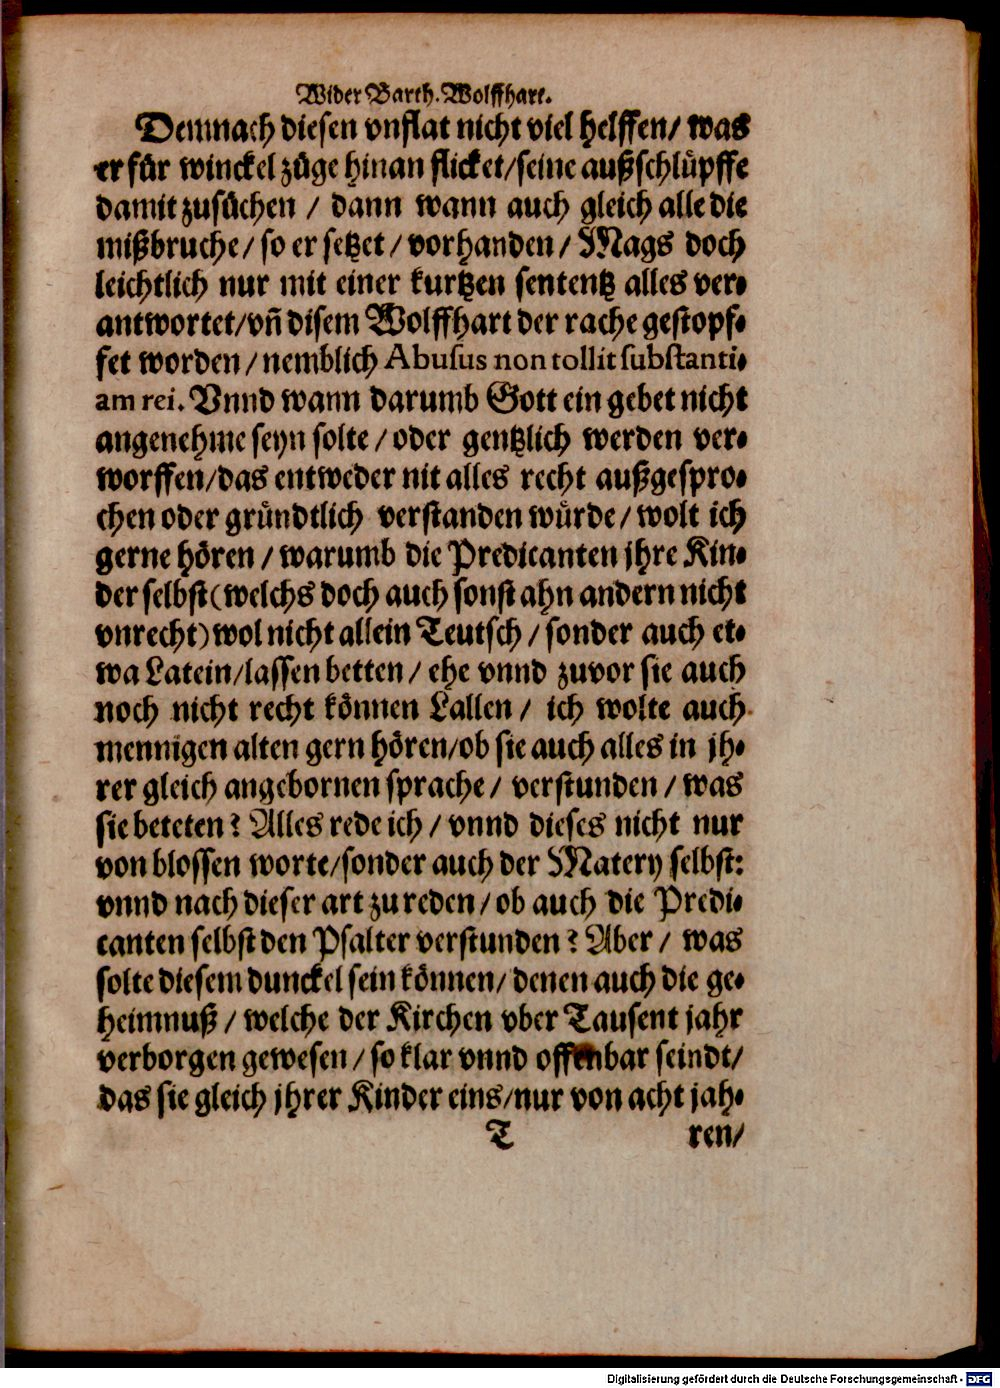 Wider Barth. Wolffhart.
Demnach diesen vnflat nicht viel helffen/ was
er für winckel züge hinan flicket/seine außschlüpffe
damit zusůchen / dann wann auch gleich alle die
mißbruche/ so er setzet/ vorhanden/ Mags doch
leichtlich nur mit einer kurtzen sententz alles ver⸗
antwortet/vñ disem Wolffhart der rache gestopf⸗
fet worden/ nemblich Abusus non tollit substanti⸗
am rei. Vnnd wann darumb Gott ein gebet nicht
angenehme seyn solte/ oder gentzlich werden ver⸗
worffen/das entweder nit alles recht außgespro⸗
chen oder gründtlich verstanden würde/ wolt ich
gerne hören/ warumb die Predicanten jhre Kin⸗
der selbst(welchs doch auch sonst ahn andern nicht
vnrecht)wol nicht allein Teutsch/ sonder auch et⸗
wa Latein/lassen betten/ ehe vnnd zuvor sie auch
noch nicht recht können Lallen/ ich wolte auch
mennigen alten gern hören/ob sie auch alles in jh⸗
rer gleich angebornen sprache/ verstunden/ was
sie beteten? Alles rede ich/ vnnd dieses nicht nur
von blossen worte/sonder auch der Matery selbst:
vnnd nach dieser art zu reden/ ob auch die Predi⸗
canten selbst den Psalter verstunden? Aber/ was
solte diesem dunckel sein können/ denen auch die ge⸗
heimnuß/ welche der Kirchen vber Tausent jahr
verborgen gewesen/ so klar vnnd offenbar seindt/
das sie gleich jhrer Kinder eins/nur von acht jah⸗
T ren/
Digitalisierung gefördert durch die Deutsche Forschungsgemeinschaft - DFG